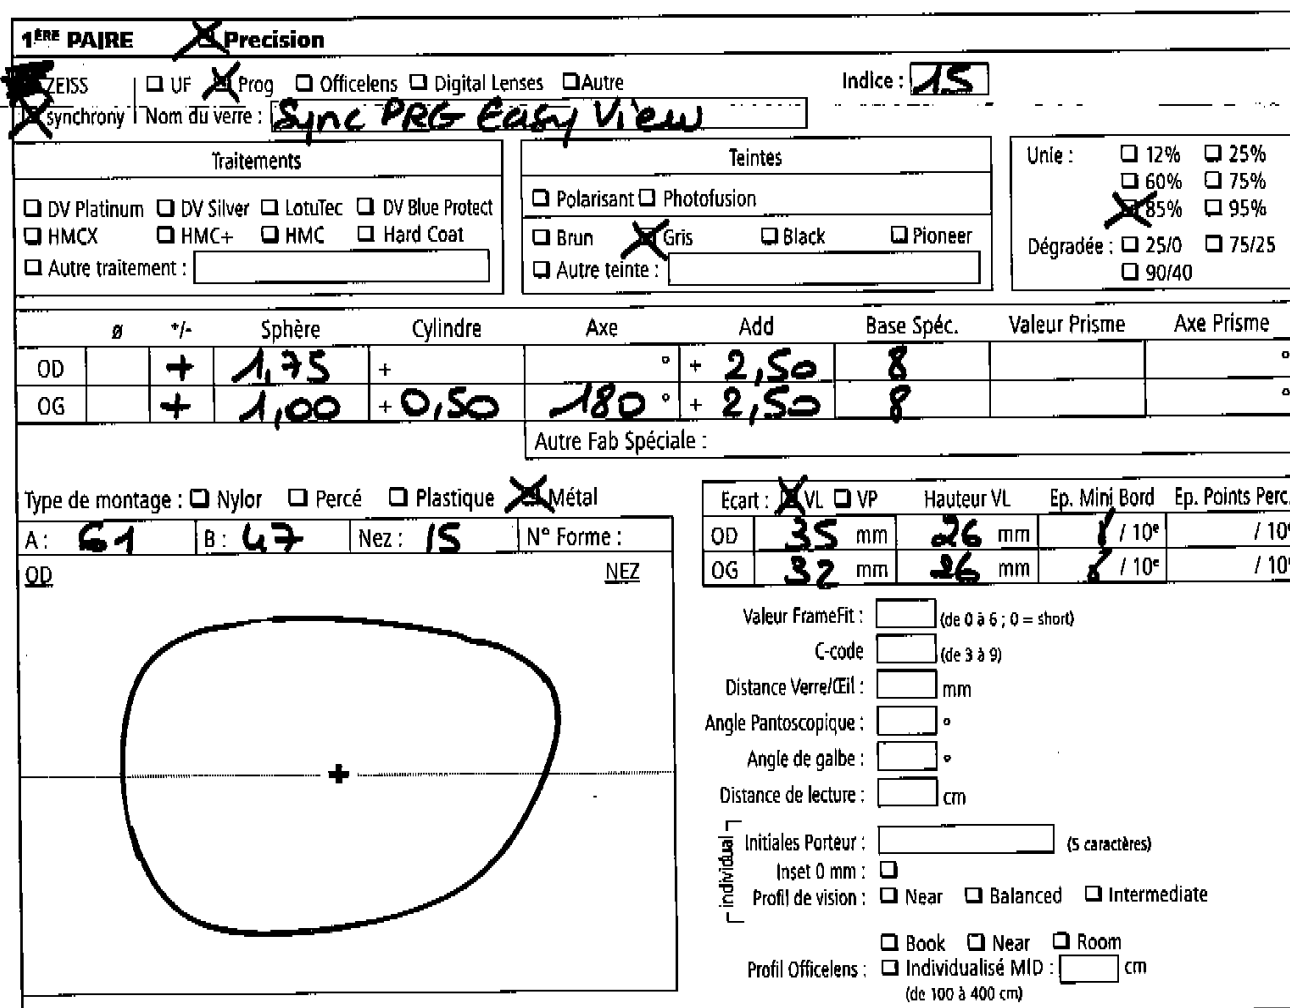 1ÈRE PAIRE ☒ Precision
ZEISS ☐ UF ☒ Prog ☐ Officelens ☐ Digital Lenses ☐ Autre Indice : 1.5
☒ synchrony Nom du verre : Sync PRG Easy View
Traitements
☐ DV Platinum ☐ DV Silver ☐ LotuTec ☐ DV Blue Protect
☐ HMCX ☐ HMC+ ☐ HMC ☐ Hard Coat
☐ Autre traitement :
Teintes
☐ Polarisant ☐ Photofusion
☐ Brun ☒ Gris ☐ Black ☐ Pioneer
☐ Autre teinte :
Unie : ☐ 12% ☐ 25%
☐ 60% ☐ 75%
☒ 85% ☐ 95%
Dégradée : ☐ 25/0 ☐ 75/25
☐ 90/40
ø +/- Sphère Cylindre Axe Add Base Spéc. Valeur Prisme Axe Prisme
OD + 1,75 + ° + 2,50 8 °
OG + 1,00 + 0,50 180 ° + 2,50 8 °
Autre Fab Spéciale :
Type de montage : ☐ Nylor ☐ Percé ☐ Plastique ☒ Métal
A : 61 B : 47 Nez : 15 N° Forme :
OD NEZ
Ecart : ☒ VL ☐ VP Hauteur VL Ep. Mini Bord Ep. Points Perc.
OD 35 mm 26 mm / 10e / 10e
OG 32 mm 26 mm / 10e / 10e
Valeur FrameFit : (de 0 à 6 ; 0 = short)
C-code (de 3 à 9)
Distance Verre/Œil : mm
Angle Pantoscopique : °
Angle de galbe : °
Distance de lecture : cm
individual
Initiales Porteur : (5 caractères)
Inset 0 mm : ☐
Profil de vision : ☐ Near ☐ Balanced ☐ Intermediate
☐ Book ☐ Near ☐ Room
Profil Officelens : ☐ Individualisé MID : cm
(de 100 à 400 cm)